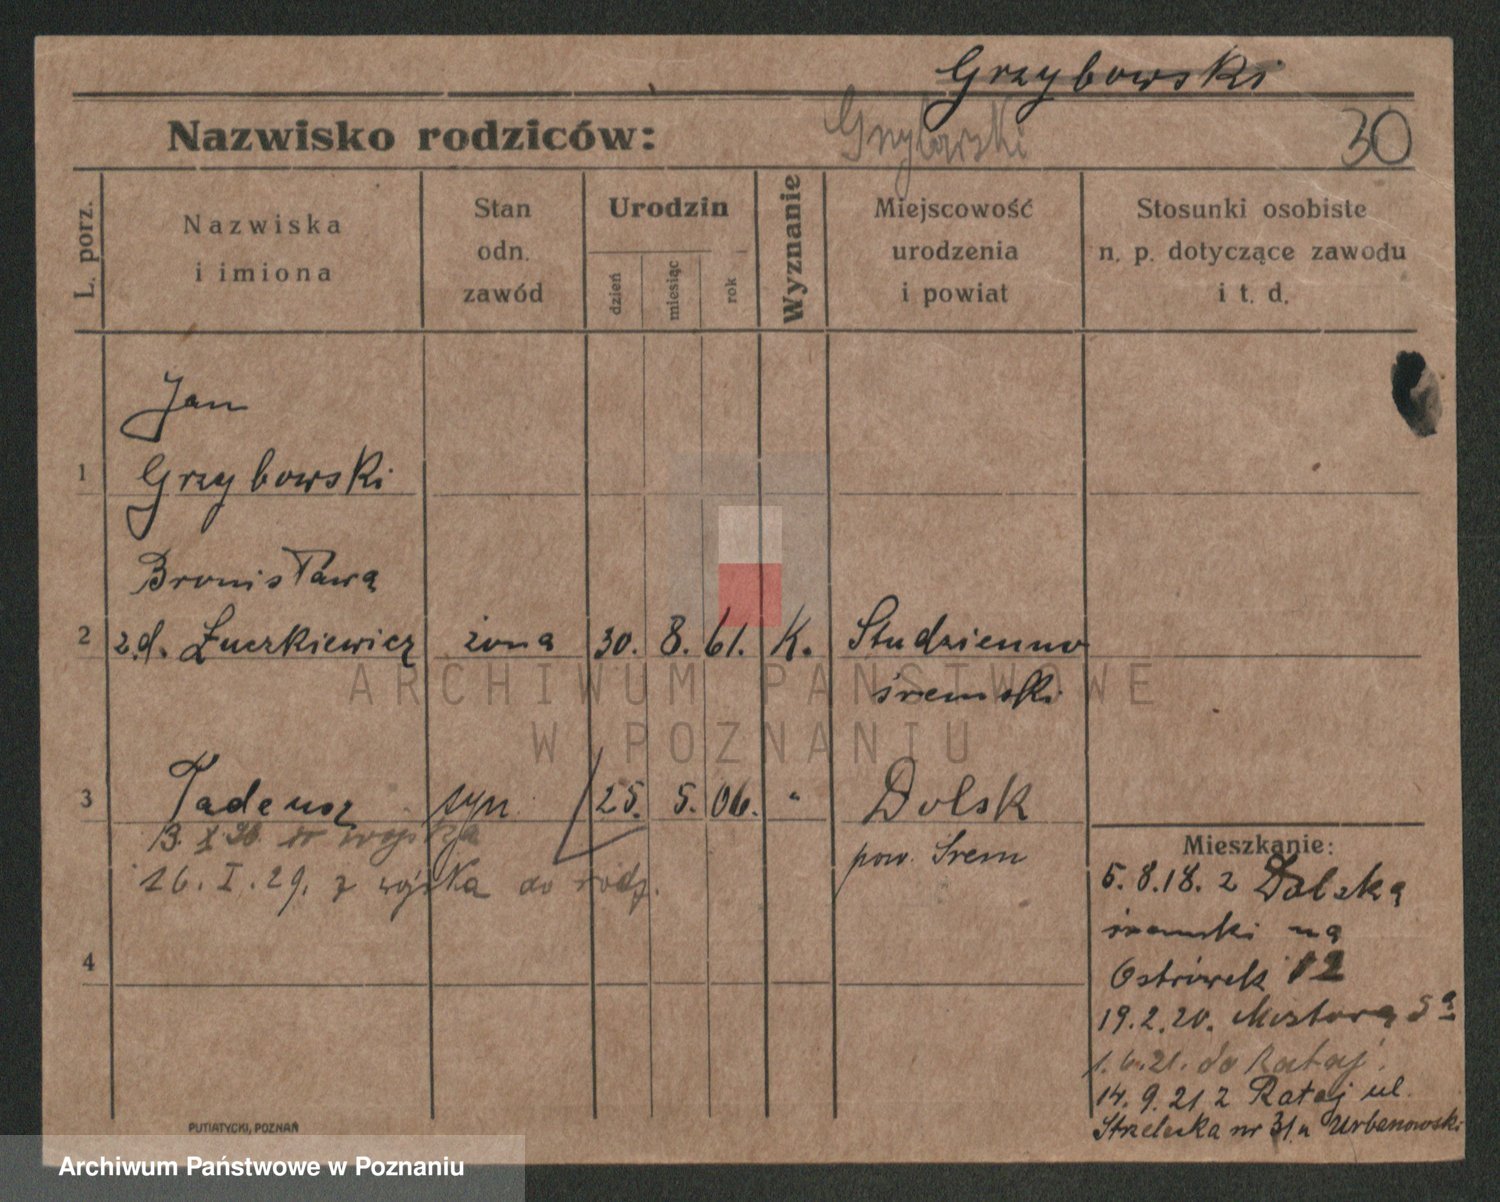 Grzybowski
Nazwisko rodziców:
Grzybowski
30
L. porz.
Nazwiska
i imiona
Stan
odn.
zawód
Urodzin
dzień
miesiąc
rok
Wyznanie
Miejscowość
urodzenia
i powiat
Stosunki osobiste
n. p. dotyczące zawodu
i t. d.
Jan
1 Grzybowski
Bronisława
2 z.d. Łuczkiewicz żona 30. 8. 61. K. Studzienno
śremski
3 Tadeusz syn 25. 5. 06. " Dolsk
3. X 26. do wojska
pow. Śrem
16. I. 29. z wojska do rodz.
4
Mieszkanie:
5.8.18. z Dolska
śremski na
Ostrówek 12
19.2.20. Mostowa 5a
1.6.21. do Rataj.
14.9.21 z Rataj ul.
Strzelecka nr 31 u Urbanowski
PUTIATYCKI, POZNAŃ
ARCHIWUM PAŃSTWOWE
W POZNANIU
Archiwum Państwowe w Poznaniu